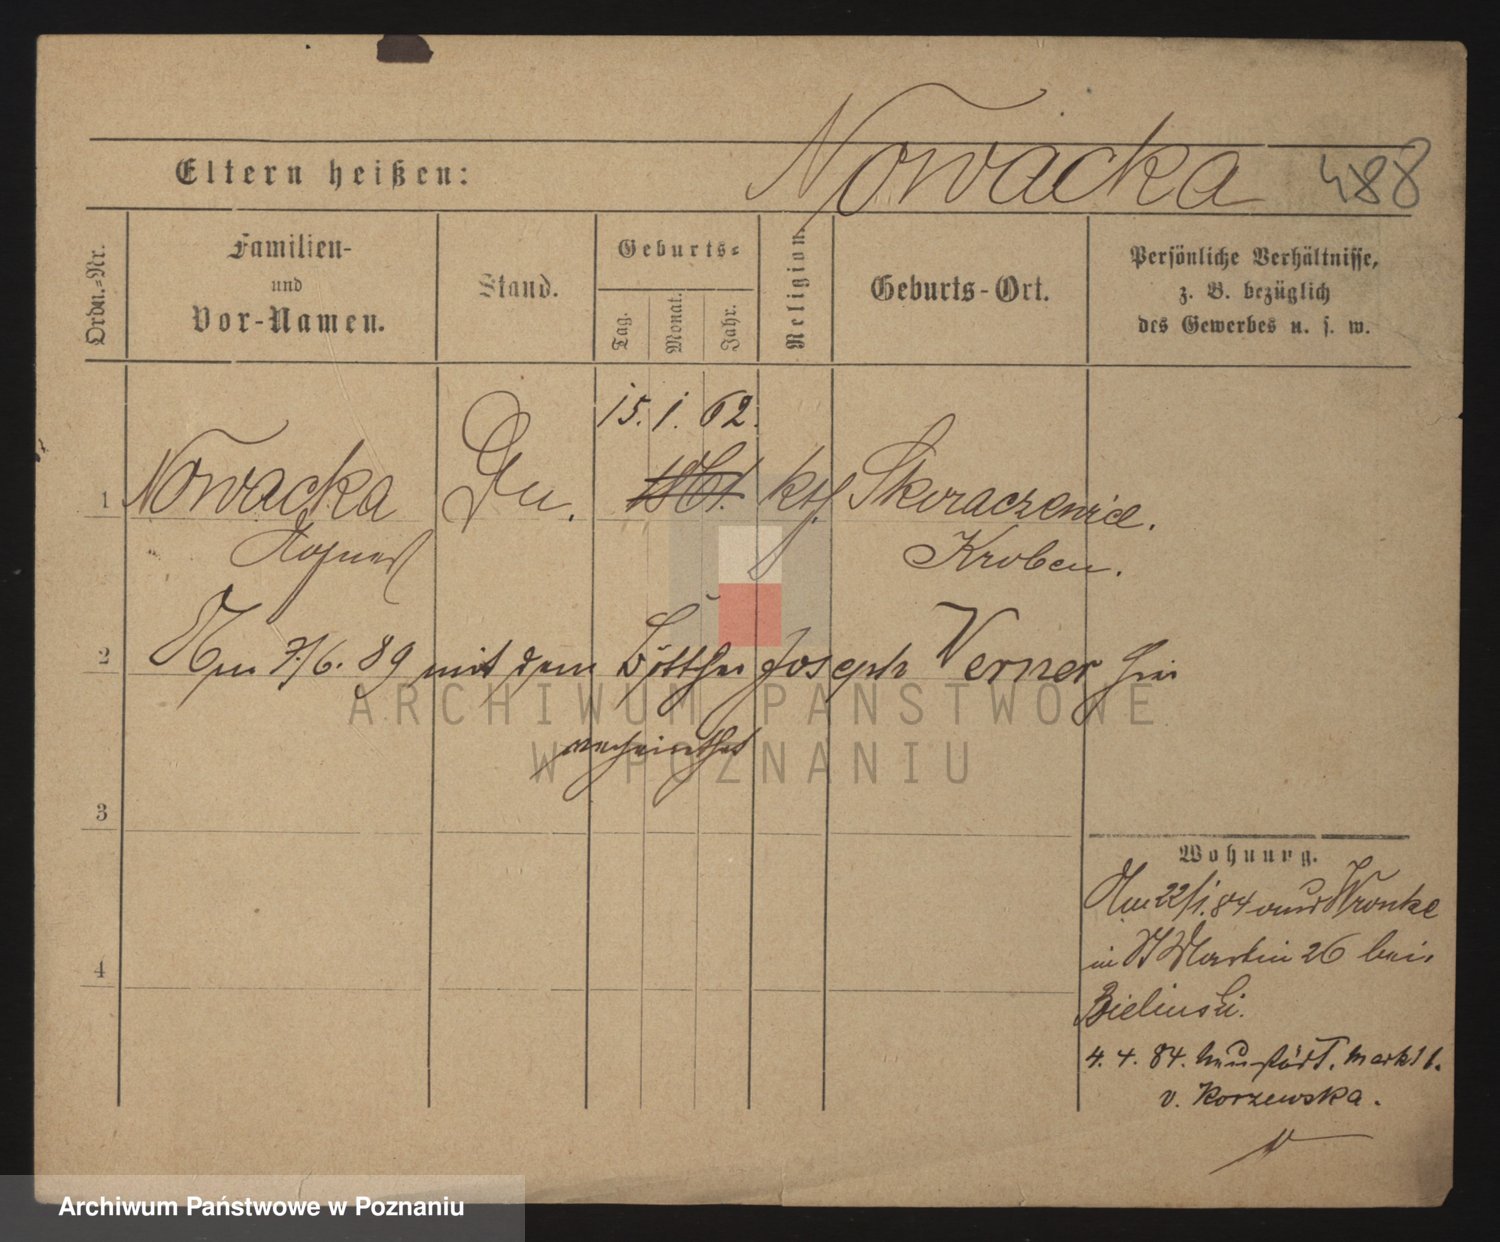 Nowacka 488
Eltern heißen:
Ordn.-Nr.
Familien-
und
Vor-Namen.
Stand.
Geburts-
Tag.
Monat.
Jahr.
Religion.
Geburts-Ort.
Persönliche Verhältnisse,
z. B. bezüglich
des Gewerbes u. s. w.
15. 1. 62.
1 Nowacka 1861. kth Skoraczewice.
Kroben.
2 Am 7/6. 89 mit dem Böttcher Joseph Verner hier
verheirathet
3
4
Wohnung.
Am 22/1. 84 aus Wronke
in St Martin 26 bei
Bielinski.
4. 4. 84. Neustädt. Markt
v. Korzewska.
ARCHIWUM PAŃSTWOWE
W POZNANIU
Archiwum Państwowe w Poznaniu